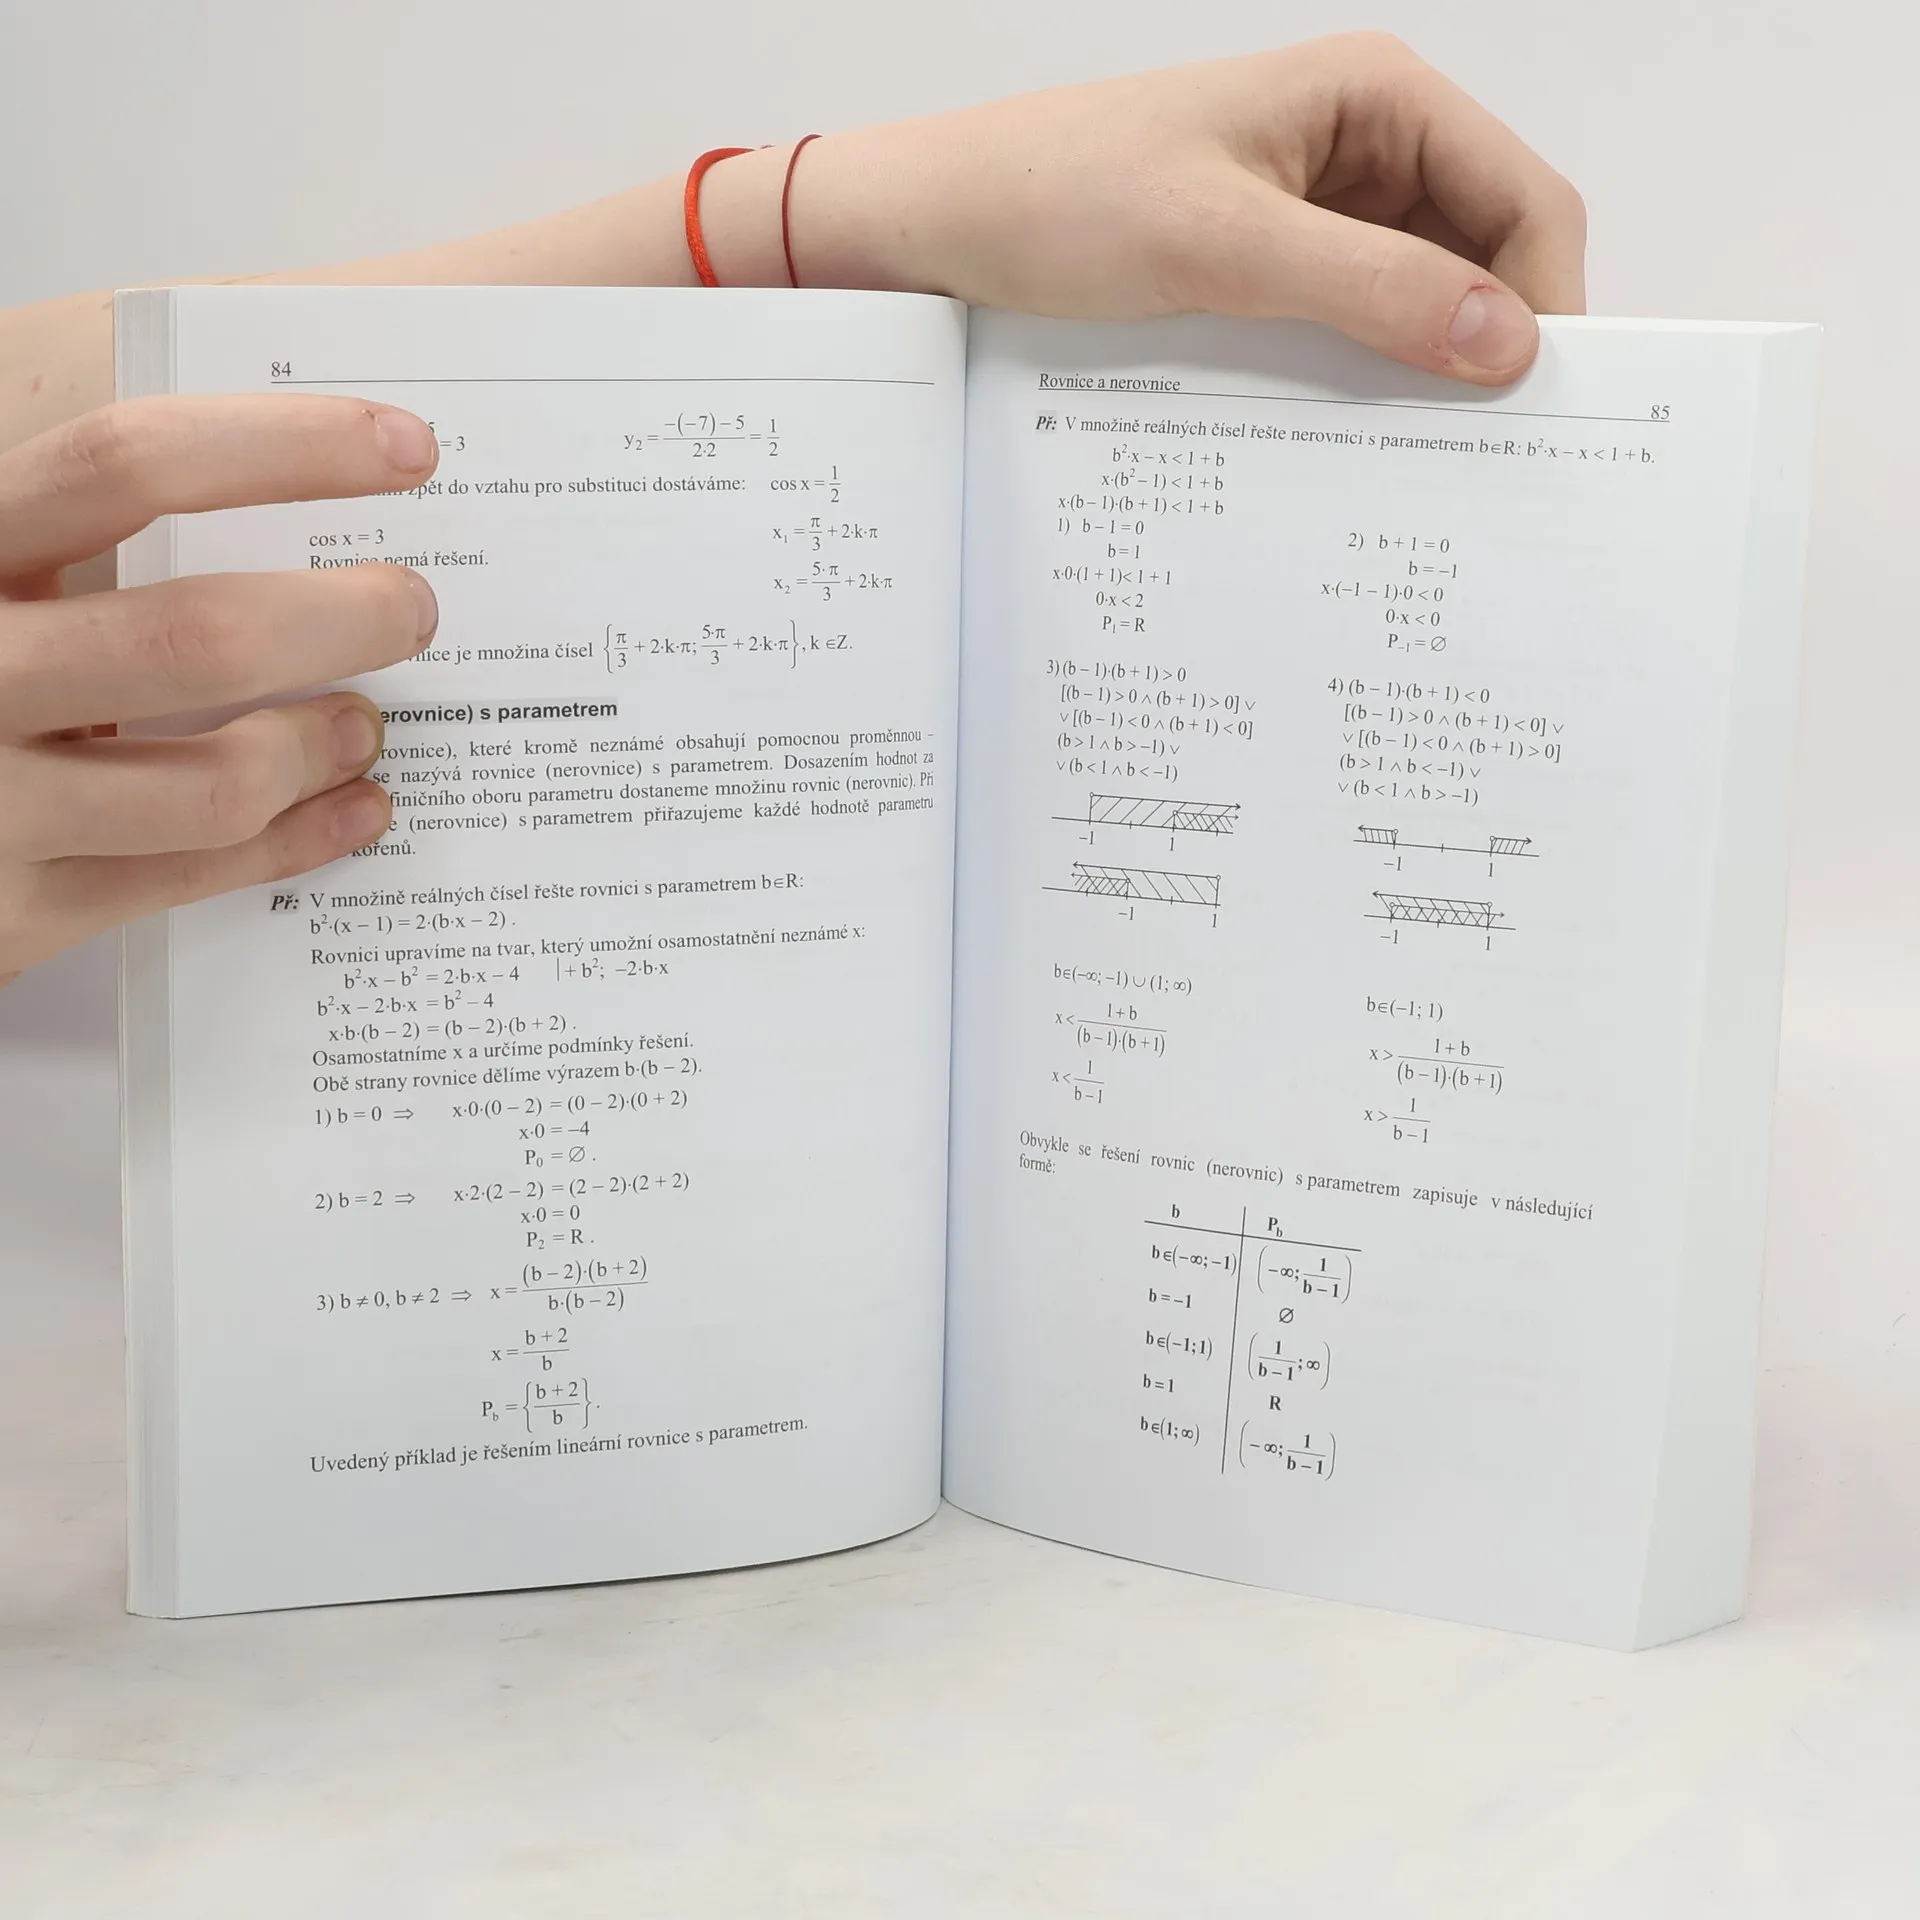 84
= 3
y₂ = (−(−7) − 5)/(2·2) = 1/2
zpět do vztahu pro substituci dostáváme: cos x = 1/2
cos x = 3
x₁ = π/3 + 2·k·π
Rovnice nemá řešení.
x₂ = 5·π/3 + 2·k·π
je množina čísel {π/3 + 2·k·π; 5·π/3 + 2·k·π}, k ∈Z.
s parametrem
které kromě neznámé obsahují pomocnou proměnnou –
se nazývá rovnice (nerovnice) s parametrem. Dosazením hodnot za
oboru parametru dostaneme množinu rovnic (nerovnic). Při
(nerovnice) s parametrem přiřazujeme každé hodnotě parametru
Př: V množině reálných čísel řešte rovnici s parametrem b∈R:
b²·(x – 1) = 2·(b·x – 2) .
Rovnici upravíme na tvar, který umožní osamostatnění neznámé x:
b²·x – b² = 2·b·x – 4 | + b²; –2·b·x
b²·x – 2·b·x = b² – 4
x·b·(b – 2) = (b – 2)·(b + 2) .
Osamostatníme x a určíme podmínky řešení.
Obě strany rovnice dělíme výrazem b·(b – 2).
1) b = 0 ⇒ x·0·(0 – 2) = (0 – 2)·(0 + 2)
x·0 = –4
P₀ = ∅ .
2) b = 2 ⇒ x·2·(2 – 2) = (2 – 2)·(2 + 2)
x·0 = 0
P₂ = R .
3) b ≠ 0, b ≠ 2 ⇒ x = (b – 2)·(b + 2)/b·(b – 2)
x = b + 2/b
P_b = {b + 2/b}.
Uvedený příklad je řešením lineární rovnice s parametrem.
Rovnice a nerovnice
85
Př: V množině reálných čísel řešte nerovnici s parametrem b∈R: b²·x – x < 1 + b.
b²·x – x < 1 + b
x·(b² – 1) < 1 + b
x·(b – 1)·(b + 1) < 1 + b
1) b – 1 = 0
b = 1
x·0·(1 + 1)< 1 + 1
0·x < 2
P₁ = R
2) b + 1 = 0
b = –1
x·(–1 – 1)·0 < 0
0·x < 0
P₋₁ = ∅
3) (b – 1)·(b + 1) > 0
[(b – 1) > 0 ∧ (b + 1) > 0] ∨
∨ [(b – 1) < 0 ∧ (b + 1) < 0]
(b > 1 ∧ b > –1) ∨
∨ (b < 1 ∧ b < –1)
–1 1
–1 1
b∈(–∞; –1) ∪ (1; ∞)
x < 1 + b/(b – 1)·(b + 1)
x < 1/b – 1
4) (b – 1)·(b + 1) < 0
[(b – 1) > 0 ∧ (b + 1) < 0] ∨
∨ [(b – 1) < 0 ∧ (b + 1) > 0]
(b > 1 ∧ b < –1) ∨
∨ (b < 1 ∧ b > –1)
–1 1
–1 1
b∈(–1; 1)
x > 1 + b/(b – 1)·(b + 1)
x > 1/b – 1
Obvykle se řešení rovnic (nerovnic) s parametrem zapisuje v následující
formě:
b P_b
b∈(–∞; –1) (–∞; 1/b – 1)
b = –1 ∅
b∈(–1; 1) (1/b – 1; ∞)
b = 1 R
b∈(1; ∞) (–∞; 1/b – 1)